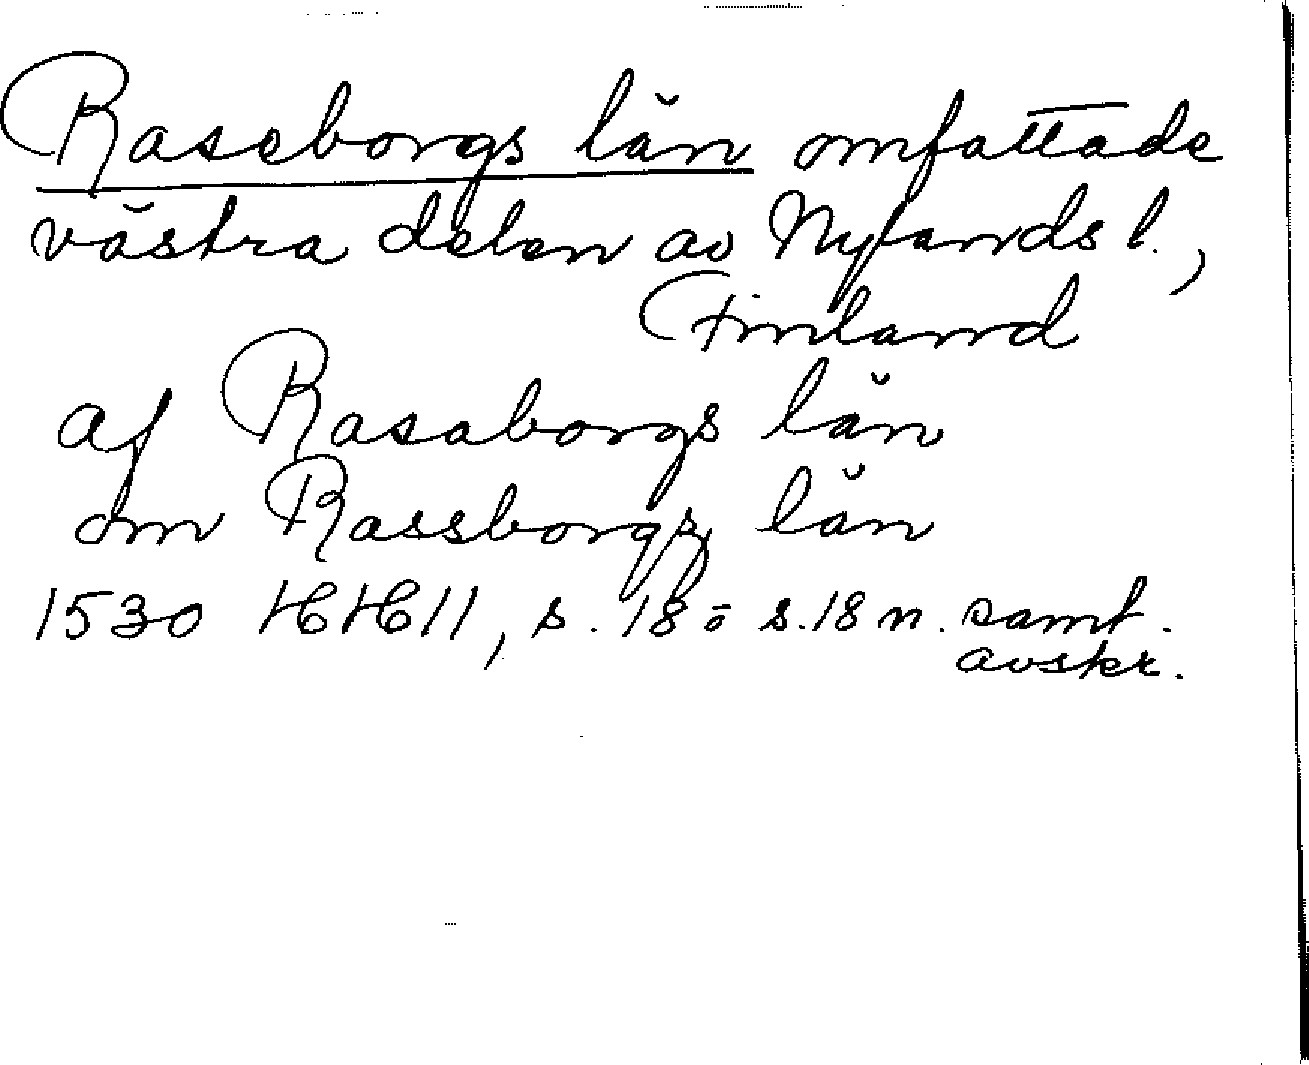 Raseborgs län omfattade
västra delen av Nylands l.,
Finland
af Rasaborgs län
om Rassborgs län
1530 HH 11, s. 18 ö s. 18 n. samt.
avskr.